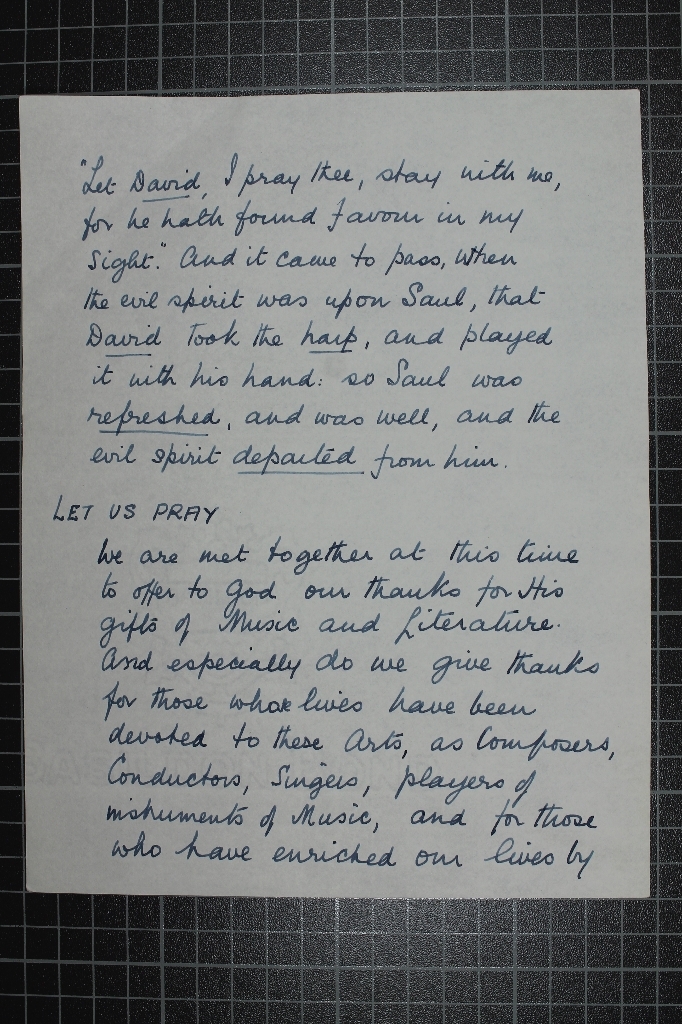 "Let David, I pray thee, stay with me,
for he hath found favour in my
sight." And it came to pass, when
the evil spirit was upon Saul, that
David took the harp, and played
it with his hand: so Saul was
refreshed, and was well, and the
evil spirit departed from him.
LET US PRAY
We are met together at this time
to offer to God our thanks for His
gifts of Music and Literature.
And especially do we give thanks
for those whose lives have been
devoted to these Arts, as Composers,
Conductors, Singers, players of
instruments of Music, and for those
who have enriched our lives by